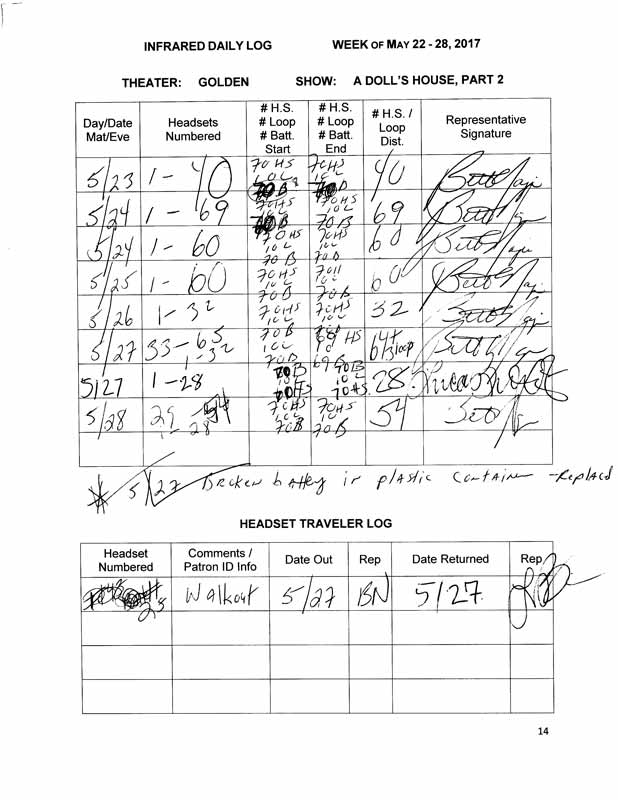 INFRARED DAILY LOG WEEK OF MAY 22 - 28, 2017
THEATER: GOLDEN SHOW: A DOLL'S HOUSE, PART 2
Day/Date Mat/Eve
Headsets Numbered
# H.S. # Loop # Batt. Start
# H.S. # Loop # Batt. End
# H.S. / Loop Dist.
Representative Signature
5/23 1 - 40 70 HS 10 L 70 B 70 HS 10 L 40
5/24 1 - 69 70 HS 10 L 70 B 70 HS 10 L 70 B 69
5/24 1 - 60 70 HS 10 L 70 B 70 HS 10 L 70 B 60
5/25 1 - 60 70 HS 10 L 70 B 10 L 70 B 60
5/26 1 - 32 70 HS 10 L 70 B 70 HS 10 L 70 B 32
5/27 33 - 65 1 - 32 10 L 70 B 69 HS 69 B 64+
5/27 1 - 28 70 B 10 L 70 HS 70 B 10 L 70 HS 28
5/28 1 - 28 70 HS 10 L 70 B 70 HS 10 L 70 B 54
5/27 Broken battery in plastic container - Replacd
HEADSET TRAVELER LOG
Headset Numbered
Comments / Patron ID Info
Date Out
Rep
Date Returned
Rep
Walkout 5/27 BN 5/27
14